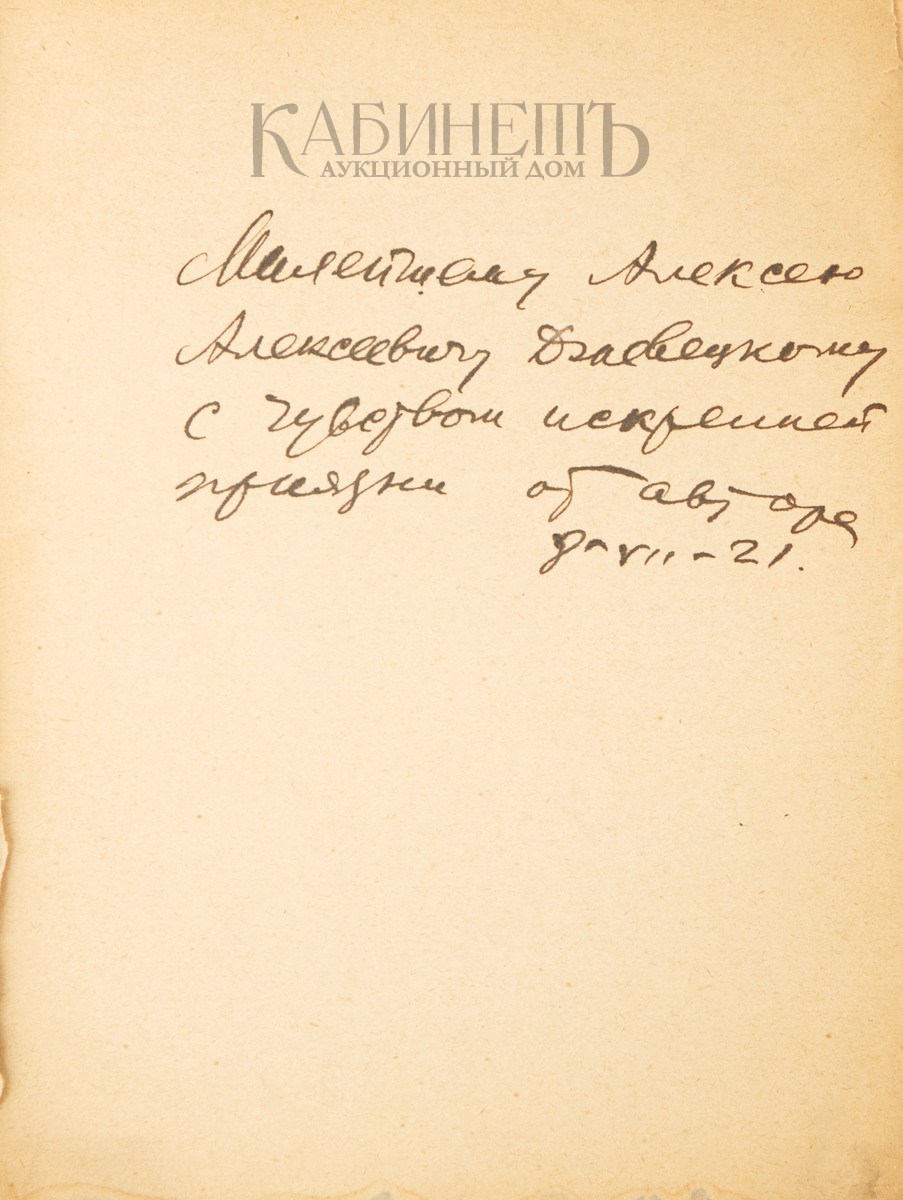 КАБИНЕТЪ
АУКЦИОННЫЙ ДОМ
Милейшему Алексею
Алексеевичу
с чувством искренней
приязни от автора
8-VII-21.